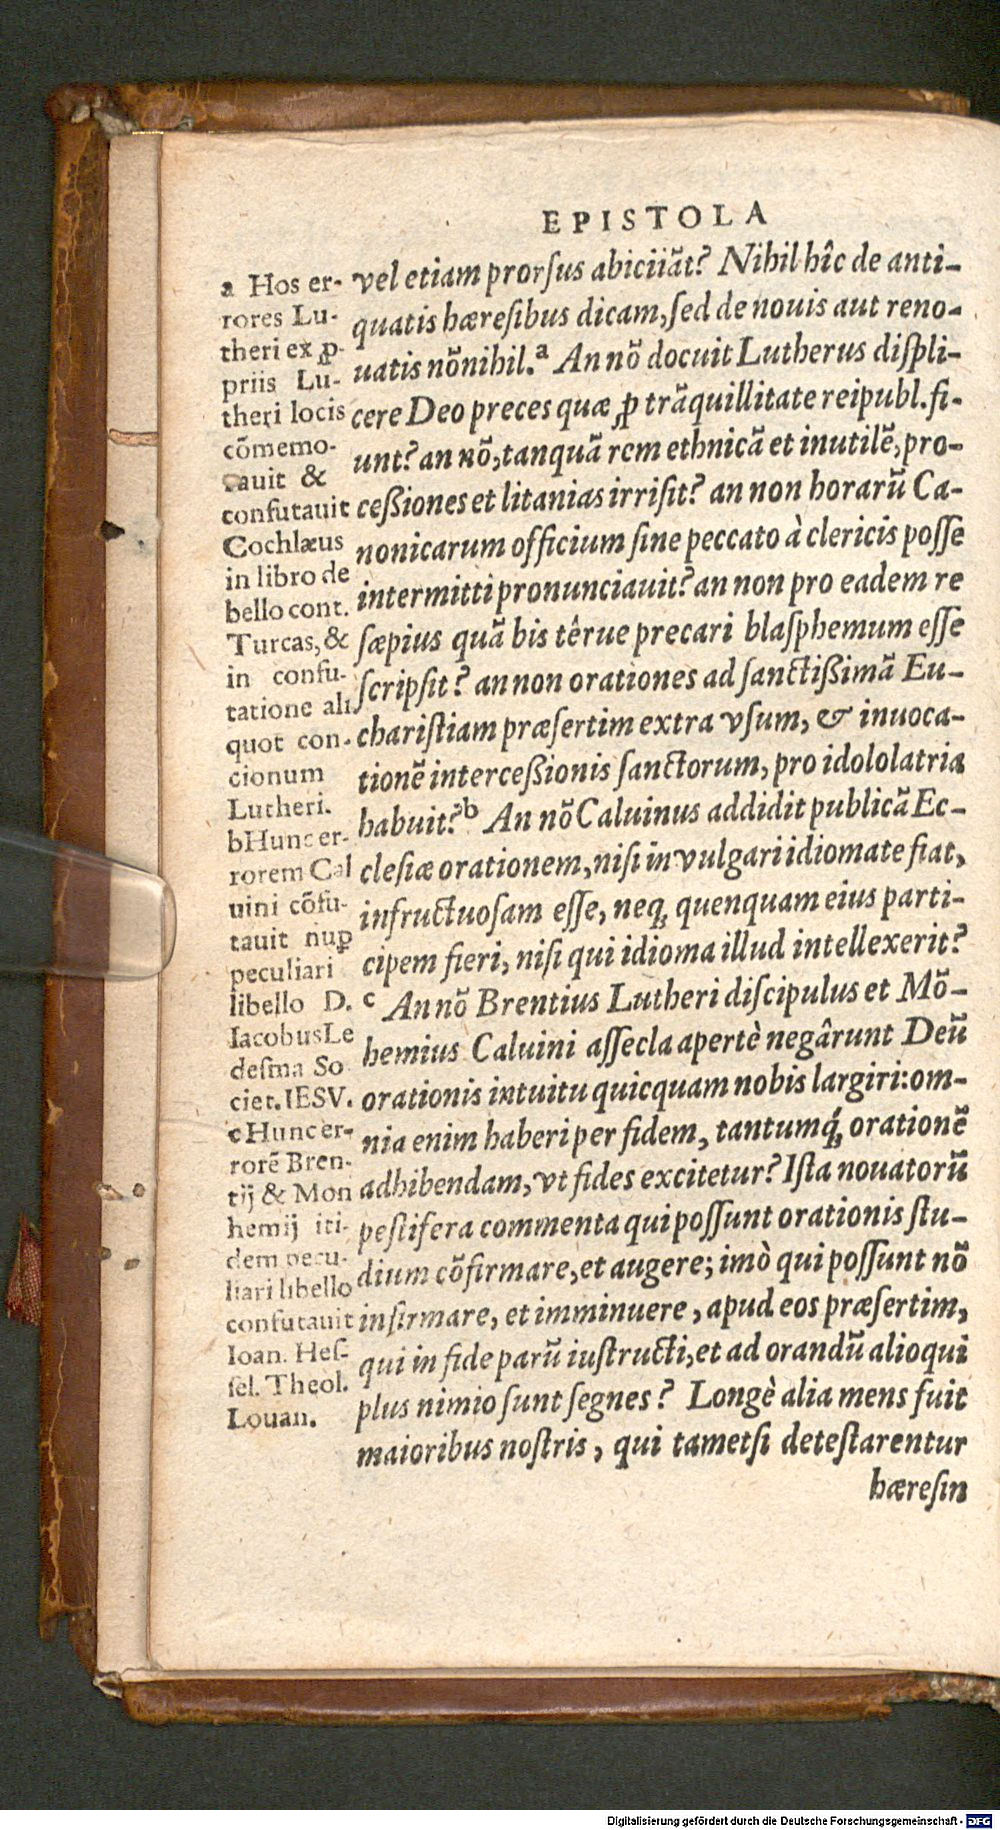 EPISTOLA
vel etiam prorſus abiciiãt? Nihil hîc de anti-
quatis hæreſibus dicam, ſed de nouis aut reno-
uatis nõnihil.ᵃ An nõ docuit Lutherus diſpli-
cere Deo preces quæ ꝓ trãquillitate reipubl. fi-
unt? an nõ, tanquã rem ethnicã et inutilẽ, pro-
ceßiones et litanias irriſit? an non horarũ Ca-
nonicarum officium ſine peccato à clericis poſſe
intermitti pronunciauit? an non pro eadem re
ſæpius quã bis têrue precari blaſphemum eſſe
ſcripſit? an non orationes ad ſanctißimã Eu-
chariſtiam præſertim extra vſum, & inuoca-
tionẽ interceßionis ſanctorum, pro idololatria
habuit?ᵇ An nõ Caluinus addidit publicã Ec-
cleſiæ orationem, niſi in vulgari idiomate fiat,
infructuoſam eſſe, neq́ quenquam eius parti-
cipem fieri, niſi qui idioma illud intellexerit?
ᶜ An nõ Brentius Lutheri diſcipulus et Mõ-
hemius Caluini aſſecla apertè negârunt Deũ
orationis intuitu quicquam nobis largiri: om-
nia enim haberi per fidem, tantumq́ orationẽ
adhibendam, vt fides excitetur? Iſta nouatorũ
peſtifera commenta qui poſſunt orationis ſtu-
dium cõfirmare, et augere; imò qui poſſunt nõ
infirmare, et imminuere, apud eos præſertim,
qui in fide parũ iuſtructi, et ad orandũ alioqui
plus nimio ſunt ſegnes? Longè alia mens fuit
maioribus noſtris, qui tametſi deteſtarentur
hæreſin
a Hos er-
rores Lu-
theri ex ꝓ-
priis Lu-
theri locis
cõmemo-
rauit &
confutauit
Cochlæus
in libro de
bello cont.
Turcas, &
in confu-
tatione ali
quot con-
cionum
Lutheri.
b Hunc er-
rorem Cal
uini cõfu-
tauit nuꝑ
peculiari
libello D.
Iacobus Le
deſma So
ciet. IESV.
c Hunc er-
rorẽ Bren-
tij & Mon
hemij iti-
dem pecu-
liari libello
confutauit
Ioan. Heſ-
ſel. Theol.
Louan.
Digitalisierung gefördert durch die Deutsche Forschungsgemeinschaft - DFG